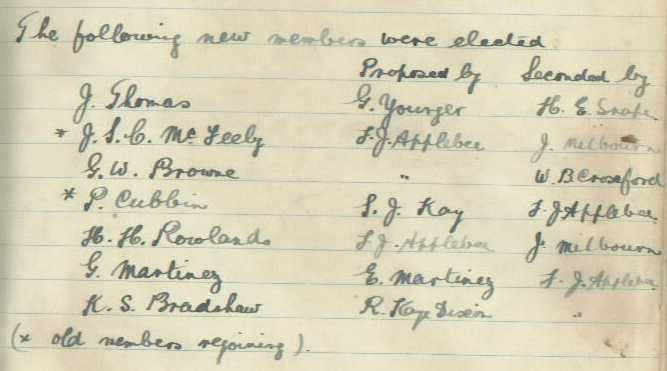 The following new members were elected
Proposed by Seconded by
J. Thomas G. Younger H. E. Snape.
* J. S. C. McFeely F. J. Applebee J. Milbourn
G. W. Browne " W. B. Crossford
* P. Cubbin S. J. Kay F. J Applebee.
H. H. Rowlands F. J. Applebee J. Milbourn
G. Martinez E. Martinez F. J. Applebee
K. S. Bradshaw R. Kaye Dixon "
(* old members rejoining).